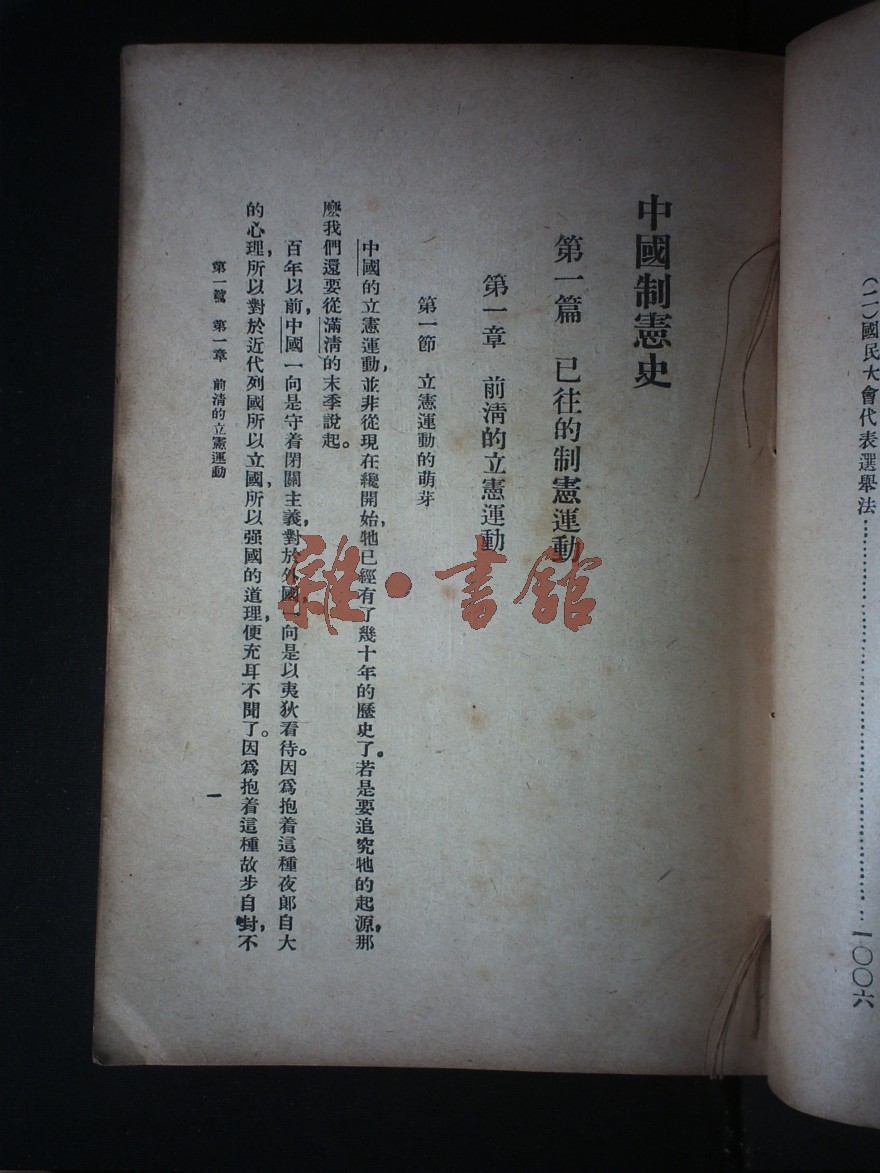 (二)國民大會代表選舉法……………………一〇〇六
中國制憲史
第一篇 已往的制憲運動
第一章 前淸的立憲運動
第一節 立憲運動的萌芽
中國的立憲運動，並非從現在纔開始，牠已經有了幾十年的歷史了。若是要追究牠的起源，那
麽我們還要從滿淸的末季說起。
百年以前，中國一向是守着閉關主義，對於外國，一向是以夷狄看待。因爲抱着這種夜郎自大
的心理，所以對於近代列國所以立國，所以强國的道理，便充耳不聞了。因爲抱着這種故步自封，不
第一篇 第一章 前淸的立憲運動
一
雜·書館